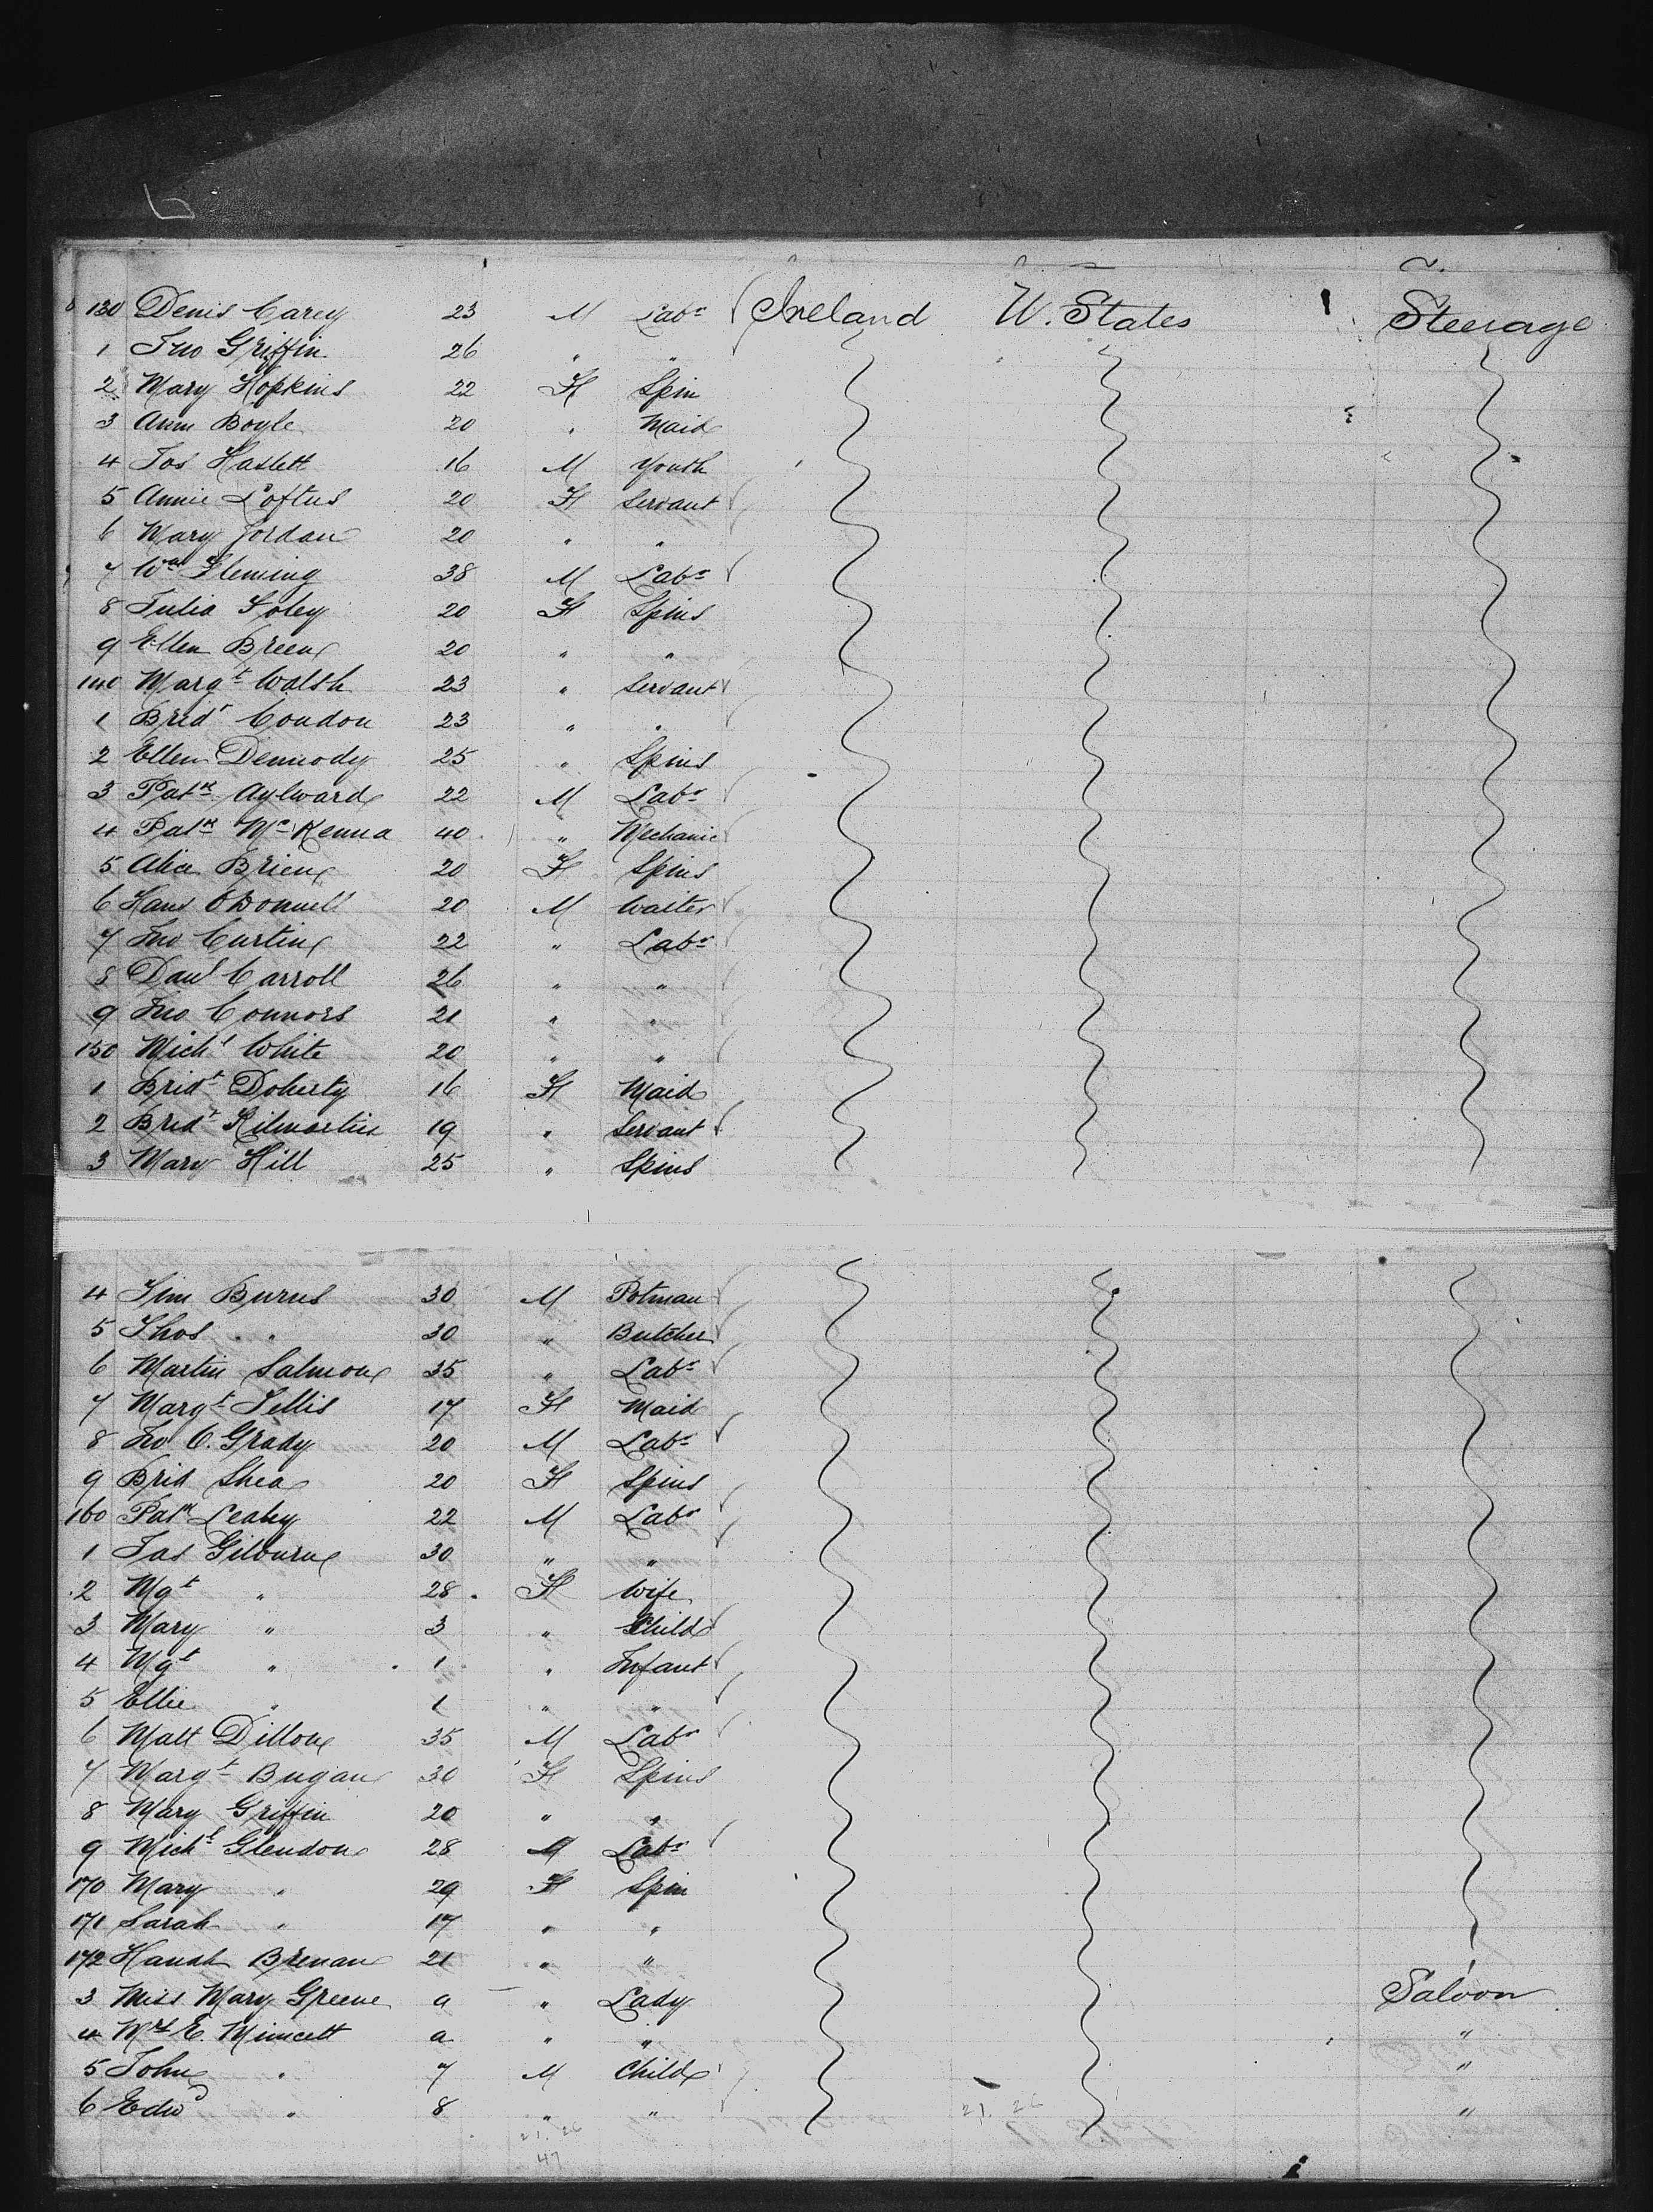 130 Denis Carey 23 M Labr Ireland U. States Steerage
1 Jno Griffin 26 " "
2 Mary Hopkins 22 F Spin
3 Ann Boyle 20 " Maid
4 Jos Haslett 16 M Youth
5 Annie Loftus 20 F Servant
6 Mary Jordan 20 " "
7 Wm Fleming 38 M Labr
8 Julia Foley 20 F Spins
9 Ellen Breen 20 " "
140 Margt Walsh 23 " Servant
1 Bridt Condon 23 " "
2 Ellen Dermody 25 " Spins
3 Patk Aylward 22 M Labr
4 Patk McKenna 40 " Mechanic
5 Alice Brien 20 F Spins
6 Hans O'Donnell 20 M Waiter
7 Jno Curtin 22 " Labr
8 Danl Carroll 26 " "
9 Jno Connors 21 " "
150 Michl White 20 " "
1 Bridt Doherty 16 F Maid
2 Bridt Kilmartin 19 " Servant
3 Mary Hill 25 " Spins
4 Jim Burns 30 M Potman
5 Thos " 30 " Butcher
6 Martin Salmon 35 " Labr
7 Margt Tellis 17 F Maid
8 Jno O. Grady 20 M Labr
9 Brid Shea 20 F Spins
160 Patk Leahy 22 M Labr
1 Jas Gilburn 30 " "
2 Mgt " 28 F Wife
3 Mary " 3 " Child
4 Mgt " 1 " Infant
5 Ellie " 1 " "
6 Matt Dillon 35 M Labr
7 Margt Bugan 30 F Spins
8 Mary Griffin 20 " "
9 Michl Glendon 28 M Labr
170 Mary " 29 F Spin
171 Sarah " 17 " "
172 Hanah Brenan 21 " " "
3 Miss Mary Greene a " Lady Saloon
4 Mrs E. Mimcett a " " "
5 John " 7 M Child "
6 Edwd " 8 " " "
21. 26 21. 26
47